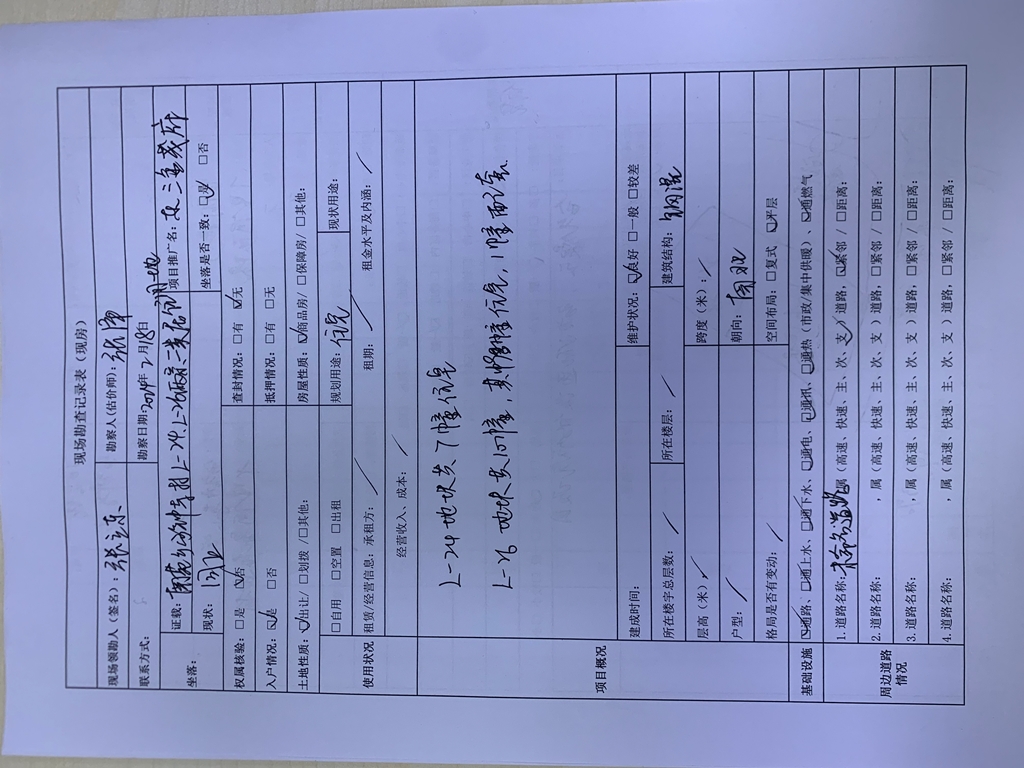 现场勘查记录表（现房）
现场领勘人（签名）：张立东 勘察人（估价师）：张
联系方式： 勘察日期：2024年2月18日
坐落： 证载： L-24.L-26 二类居住用地 项目推广名：
现状：同证 坐落是否一致：☑是 □否
权属核验：□是 ☑否 查封情况：□有 ☑无
入户情况：☑是 □否 抵押情况：□有 □无
土地性质：☑出让/ □划拨 /□其他： 房屋性质：☑商品房/ □保障房/ □其他：
使用状况 □自用 □空置 □出租 规划用途：住宅 现状用途：
租赁/经营信息：承租方： / 租期： / 租金水平及内涵： /
经营收入、成本： /
项目概况
L-24地块共7幢住宅
L-26地块共10幢，其 幢住宅，1幢配套
建成时间： 维护状况：☑良好 □一般 □较差
所在楼宇总层数： / 所在楼层： / 建筑结构：钢混
层高（米）： / 跨度（米）： /
户型： / 朝向：南北
格局是否有变动： / 空间布局：□复式 ☑平层
基础设施 ☑通路、☑通上水、☑通下水、☑通电、☑通讯、☑通热（市政/集中供暖）、☑通燃气
周边道路情况
1. 道路名称： 道路，属（高速、快速、主、次、支）道路，☑紧邻 / □距离：
2. 道路名称： ，属（高速、快速、主、次、支）道路，□紧邻 / □距离：
3. 道路名称： ，属（高速、快速、主、次、支）道路，□紧邻 / □距离：
4. 道路名称： ，属（高速、快速、主、次、支）道路，□紧邻 / □距离：